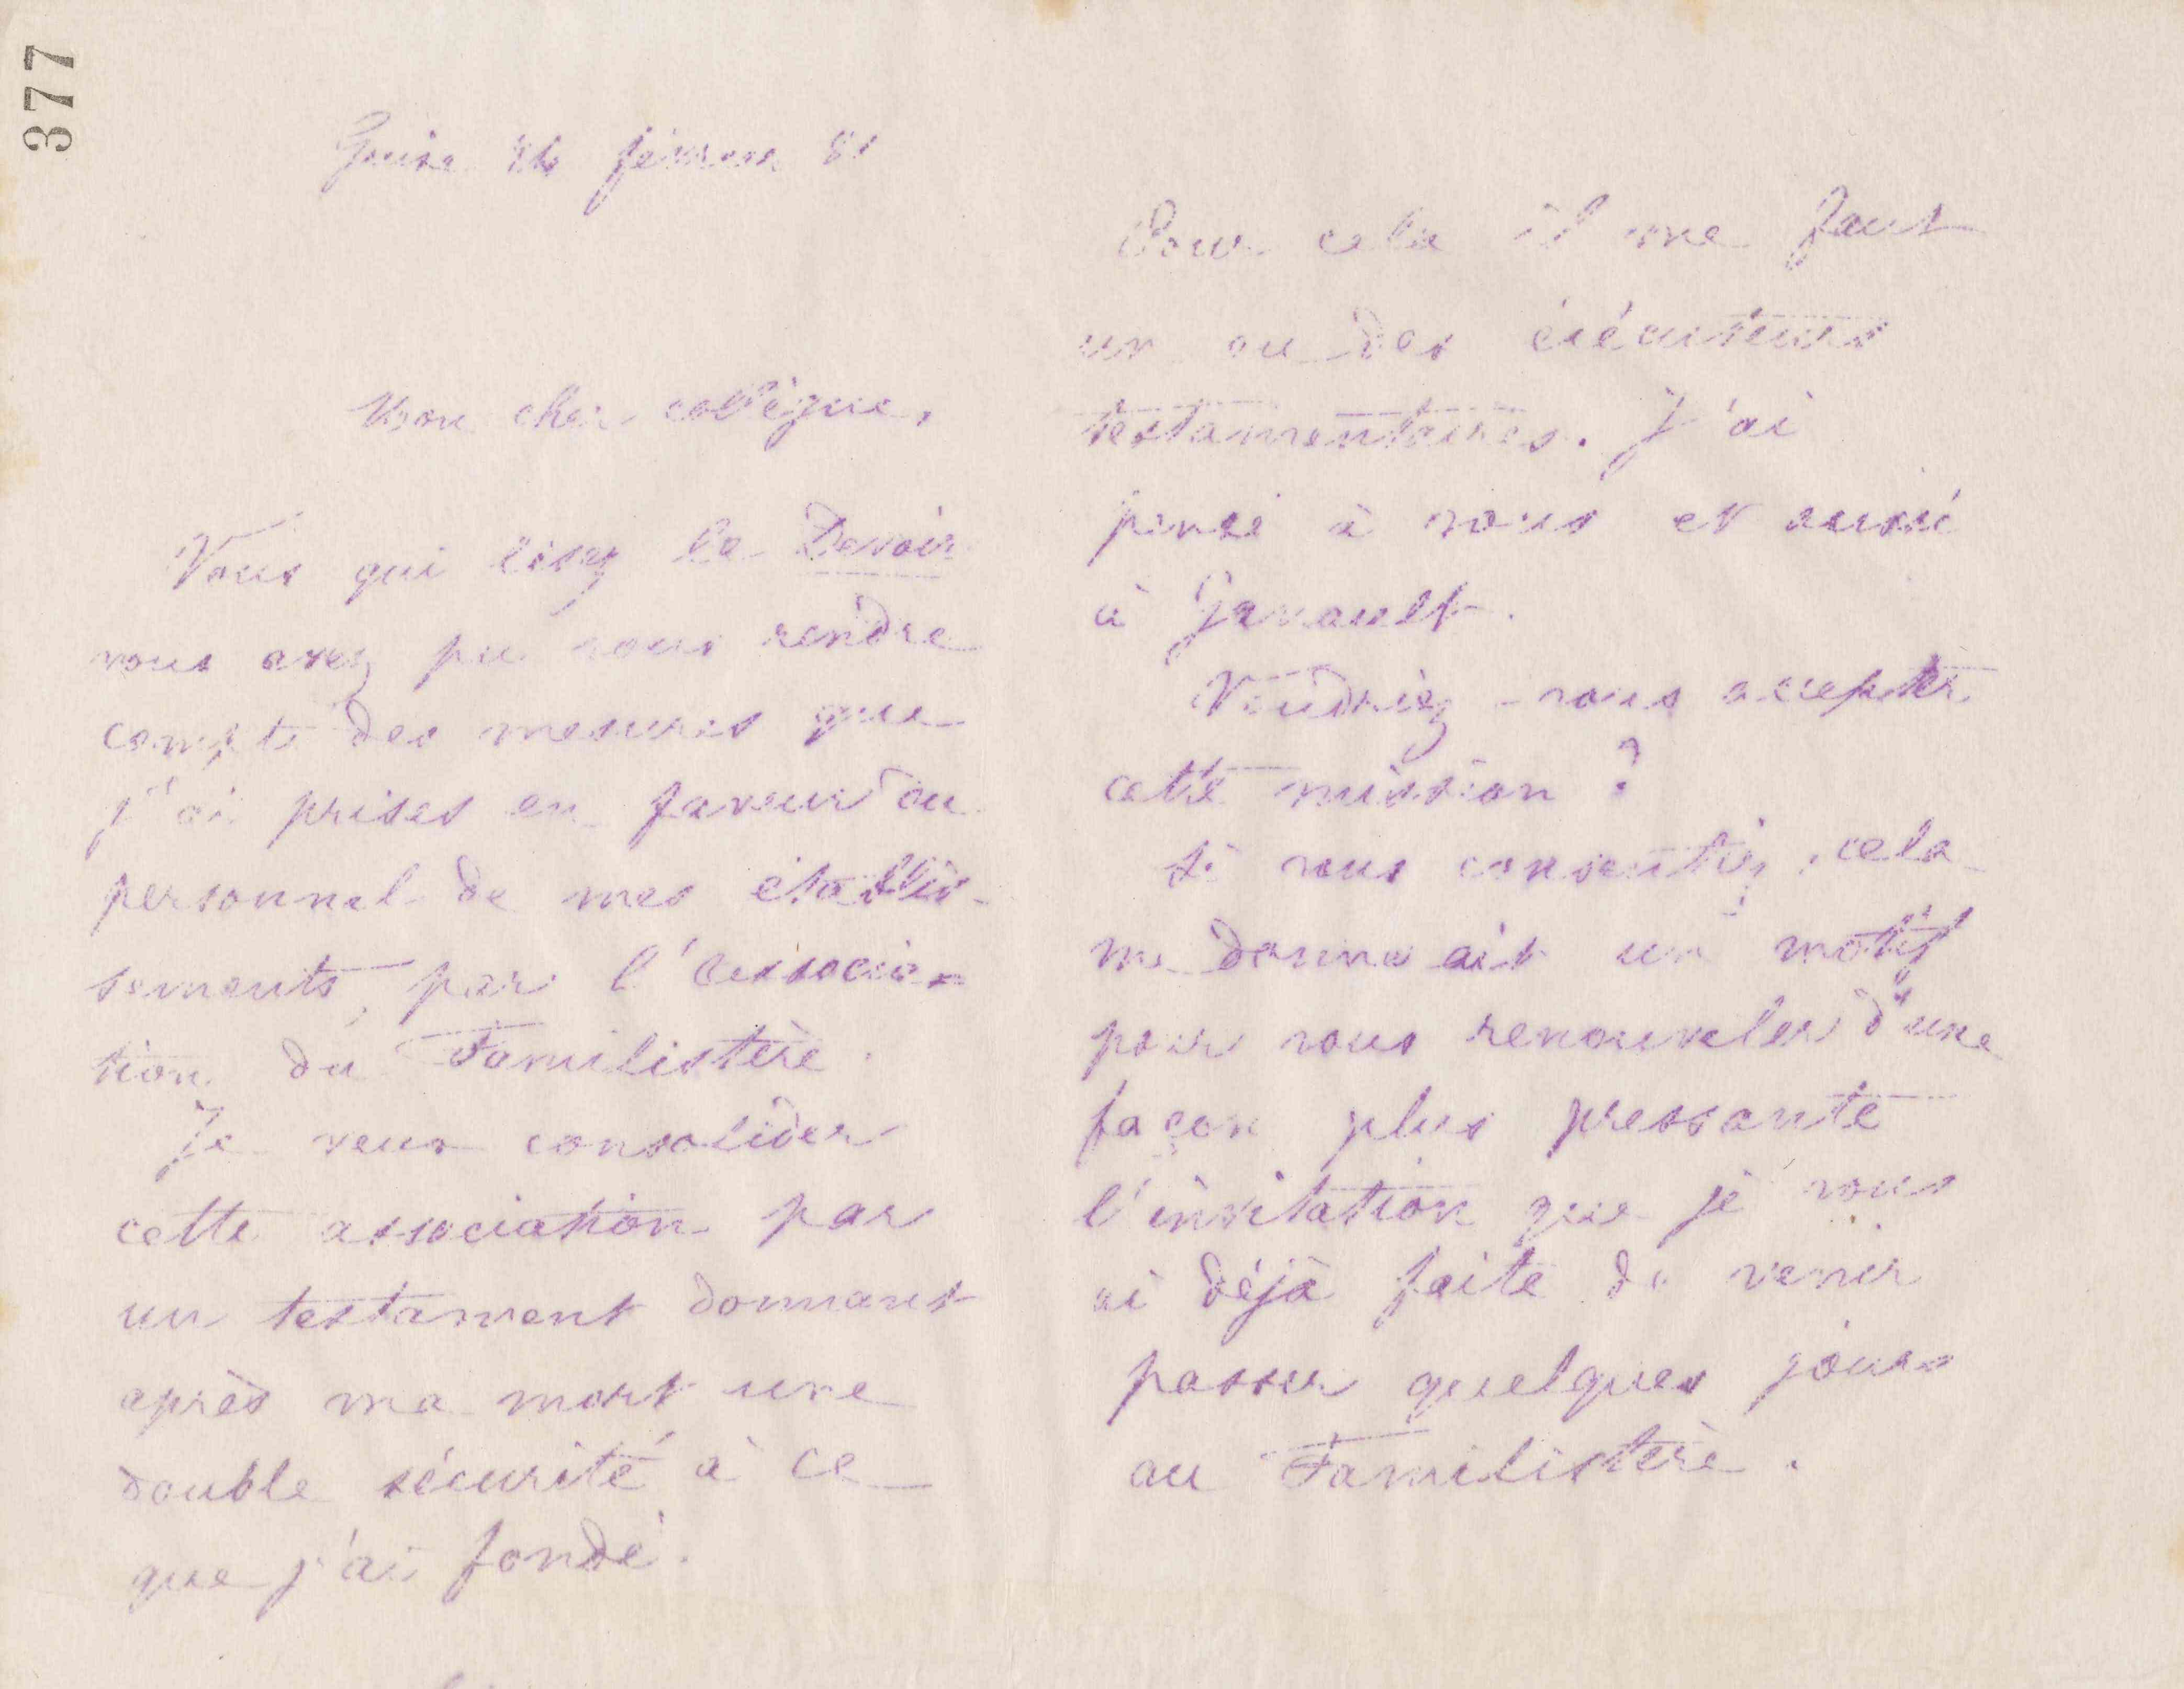 377
Guise février 81
Mon cher collègue,
Vous qui lisez le Devoir
vous avez pu vous rendre
compte des mesures que
j'ai prises en faveur du
personnel de mes établis-
sements, par l'associa=
tion du Familistère.
Je veux consolider
cette association par
un testament donnant
après ma mort une
double sécurité à ce
que j'ai fondé.
Pour cela il me faut
un ou des éxécuteurs
testamentaires. J'ai
pensé à vous et aussi
à
Voudriez-vous accepter
cette mission ?
Si vous consentiez, cela
me donnerait un motif
pour vous renouveler d'une
façon plus pressante
l'invitation que je vous
ai déjà faite de venir
passer quelques jours
au Familistère.